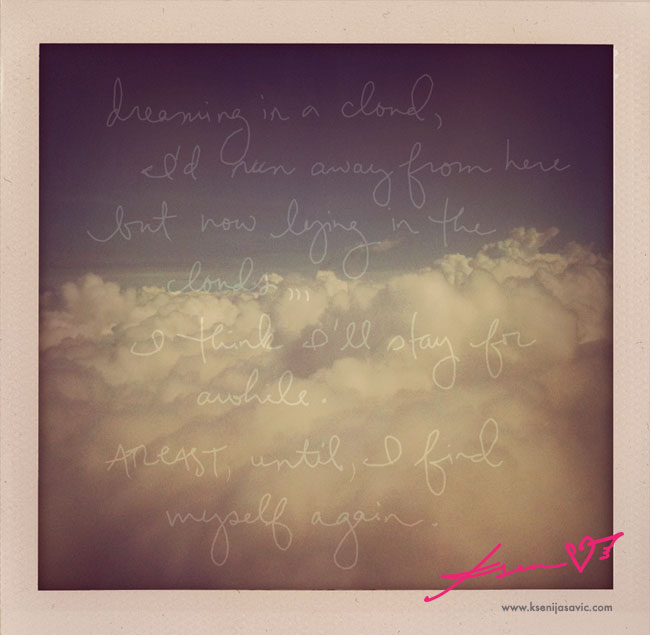 dreaming in a cloud,
I'd run away from here
but now lying in the
clouds,,,
I think I'll stay for
awhile.
ATLEAST, until, I find
myself again.
Ksen
www.ksenijasavic.com